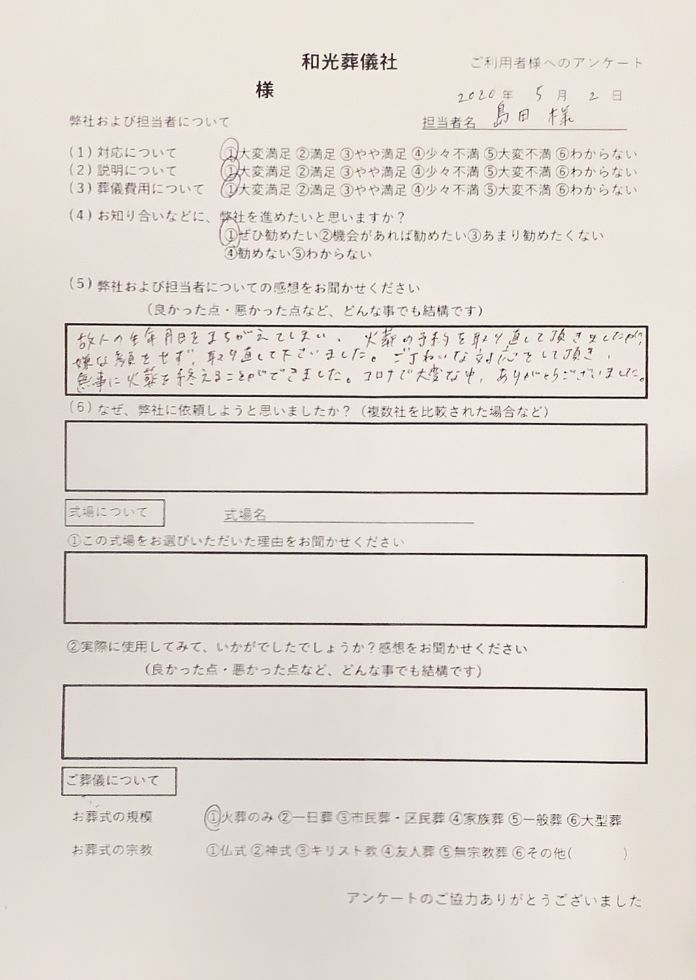 和光葬儀社 ご利用者様へのアンケート
様
2020年 5月 2日
弊社および担当者について 担当者名 島田 様
(1) 対応について ①大変満足 ②満足 ③やや満足 ④少々不満 ⑤大変不満 ⑥わからない
(2) 説明について ①大変満足 ②満足 ③やや満足 ④少々不満 ⑤大変不満 ⑥わからない
(3) 葬儀費用について ①大変満足 ②満足 ③やや満足 ④少々不満 ⑤大変不満 ⑥わからない
(4) お知り合いなどに、弊社を進めたいと思いますか？
①ぜひ勧めたい②機会があれば勧めたい③あまり勧めたくない
④勧めない⑤わからない
(5) 弊社および担当者についての感想をお聞かせください
（良かった点・悪かった点など、どんな事でも結構です）
故人の生年月日をまちがえてしまい、火葬の予約を取り直して頂きましたが、
嫌な顔もせず、取り直して下さいました。ご丁ねいな対応をして頂き、
無事に火葬を終えることができました。コロナで大変な中、ありがとうございました。
(6) なぜ、弊社に依頼しようと思いましたか？（複数社を比較された場合など）
式場について 式場名
①この式場をお選びいただいた理由をお聞かせください
②実際に使用してみて、いかがでしたでしょうか？感想をお聞かせください
（良かった点・悪かった点など、どんな事でも結構です）
ご葬儀について
お葬式の規模 ①火葬のみ ②一日葬 ③市民葬・区民葬 ④家族葬 ⑤一般葬 ⑥大型葬
お葬式の宗教 ①仏式 ②神式 ③キリスト教 ④友人葬 ⑤無宗教葬 ⑥その他( )
アンケートのご協力ありがとうございました